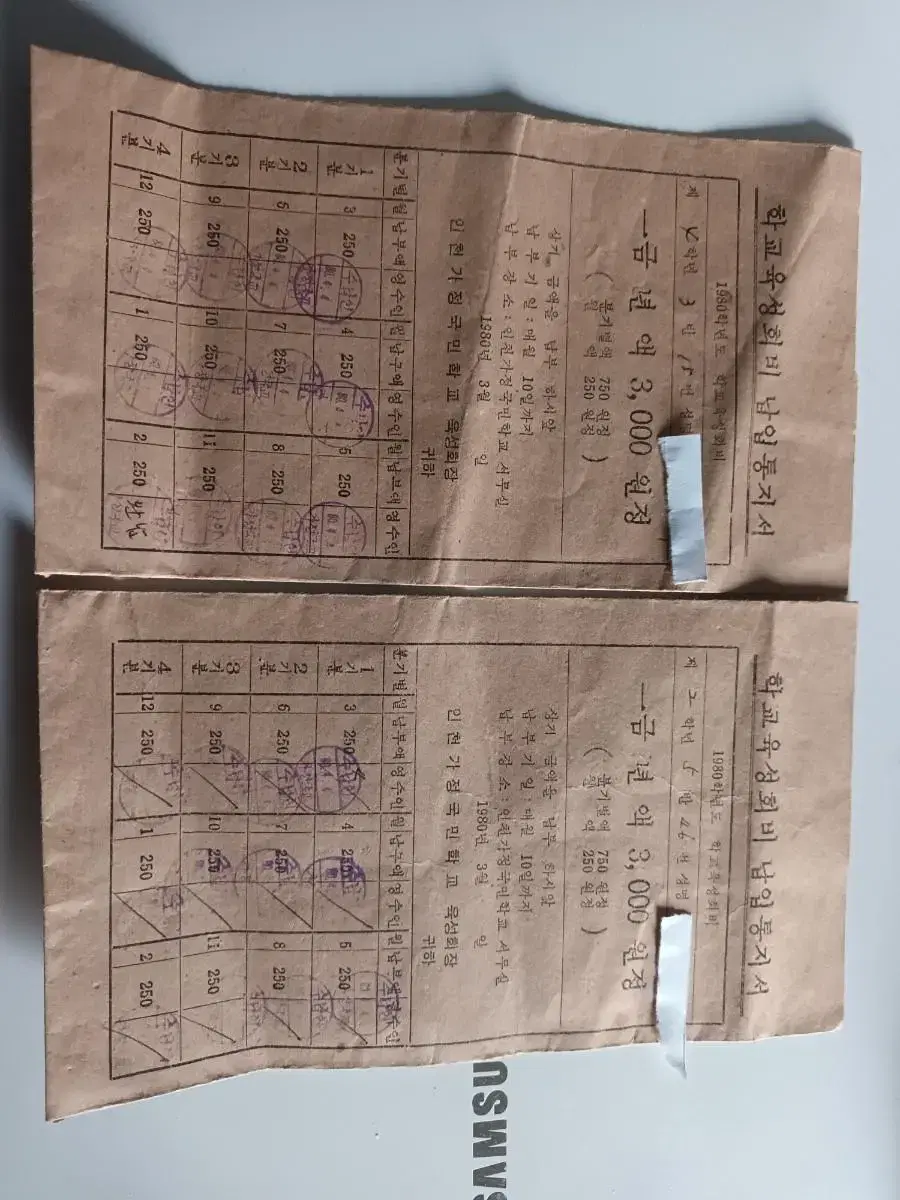 학교육성회비 납입통지서
1980학년도 학교육성회비
제 4학년 3반 15번 성명
一금 년액 3,000 원정
( 분기별액 750 원정
월액 250 원정 )
상기 금액을 납부 하시압
납부기일:매월 10일까지
납부장소:인천가정국민학교 서무실
1980년 3월 일
인천가정국민학교 육성회장
귀하
분기별 월 납부액 영수인 월 납부액 영수인 월 납부액 영수인
1기분 3 250 4 250 5 250
2기분 6 250 7 250 8 250
3기분 9 250 10 250 11 250
4기분 12 250 1 250 2 250
학교육성회비 납입통지서
1980학년도 학교육성회비
제 2학년 5반 46번 성명
一금 년액 3,000 원정
( 분기별액 750 원정
월액 250 원정 )
상기 금액을 납부 하시압
납부기일:매월 10일까지
납부장소:인천가정국민학교 서무실
1980년 3월 일
인천가정국민학교 육성회장
귀하
분기별 월 납부액 영수인 월 납부액 영수인 월 납부액 영수인
1기분 3 250 4 250 5 250
2기분 6 250 7 250 8 250
3기분 9 250 10 250 11 250
4기분 12 250 1 250 2 250